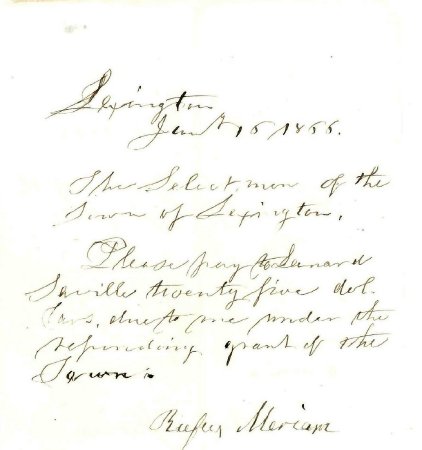 Lexington
Jany 16 1866.
The Selectmen of the
Town of Lexington,
Please pay to Leonard
Saville twenty five dol
lars, due to me under the
refunding grant of the
Town.
Rufus Meriam